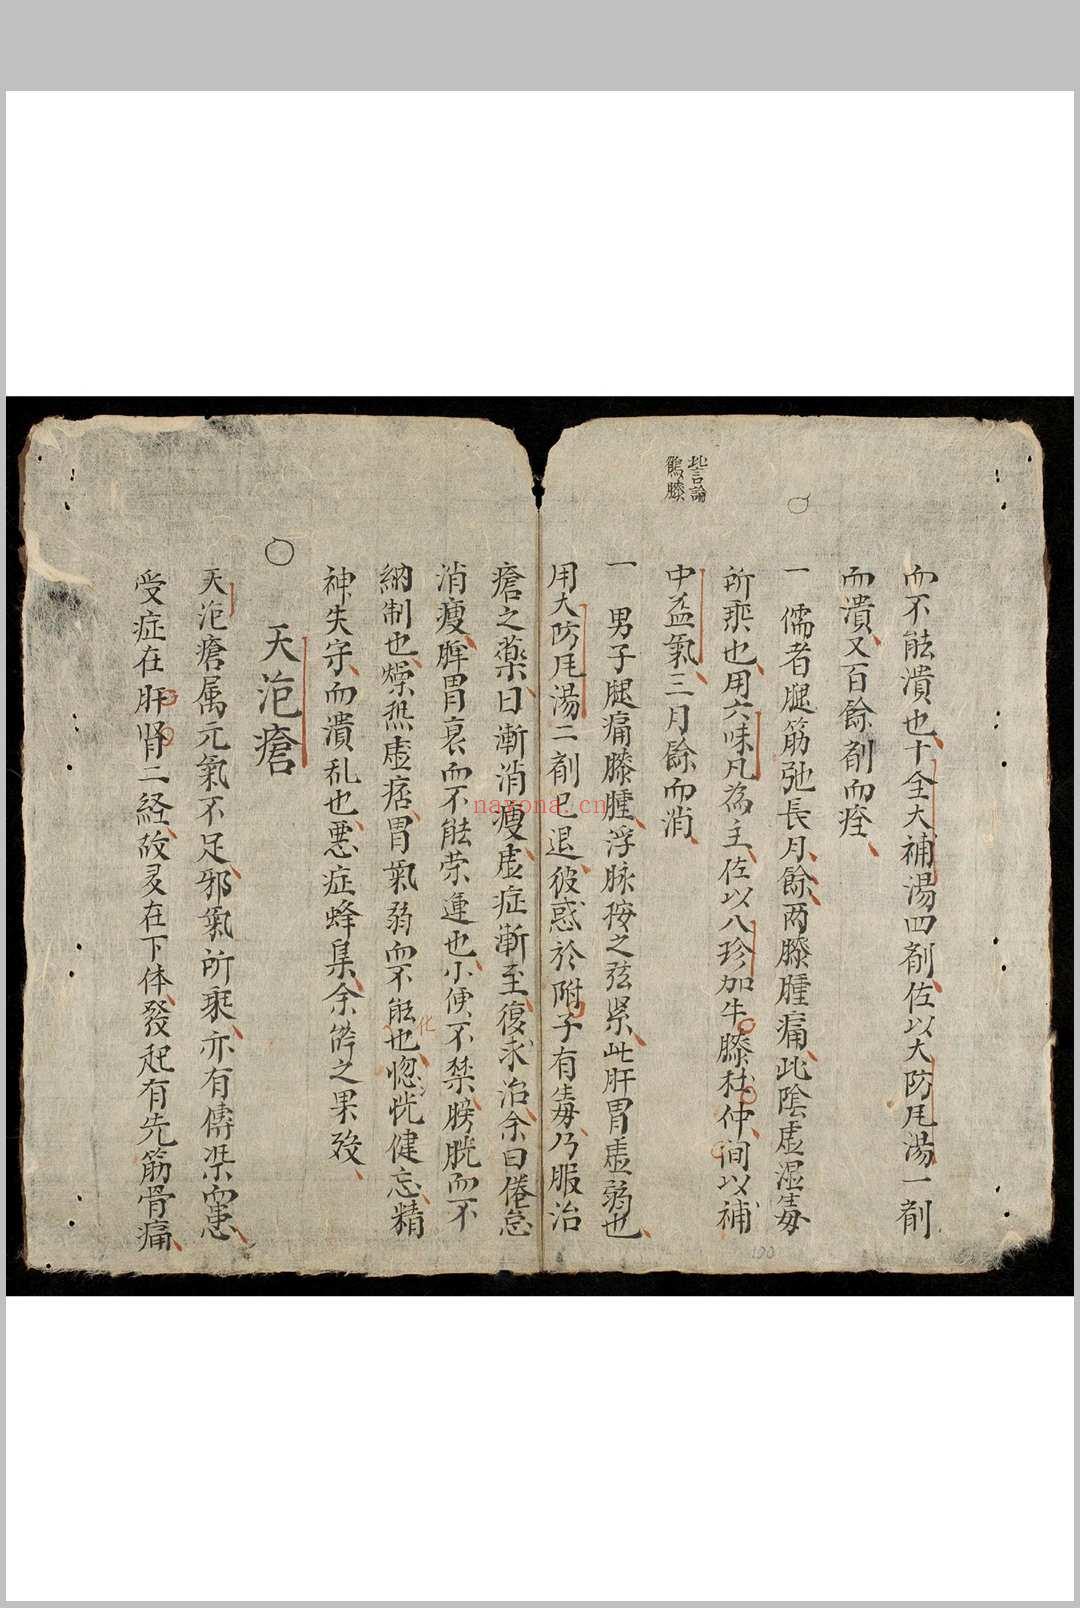 此言論
鶴膝
而不能潰也十全大補湯四剤佐以大防风湯一剤
而潰又百餘剤而痊
一 儒者腿筋弛長月餘両膝腫痛此陰虚湿毒
所乗也用六味凡為主佐以八珍加牛膝杜仲间以補
中益氣三月餘而消
一 男子腿痛膝腫浮脉按之弦紧此肝胃虚弱也
用大防风湯二剤已退彼惑於附子有毒乃服治
瘡之藥日漸消瘦虚症漸至復求治余曰倦怠
消瘦脾胃衰而不能荣運也小便不禁膀胱而不
納制也燥热虚痞胃氣弱而不能也惚恍健忘精
化
神失守而潰乱也悪症蜂集余辞之果殁
天泡瘡
天泡瘡属元氣不足邪氣所乗亦有傳染而患
受症在肝肾二経故多在下体發起有先筋骨痛
100
nayona.cn